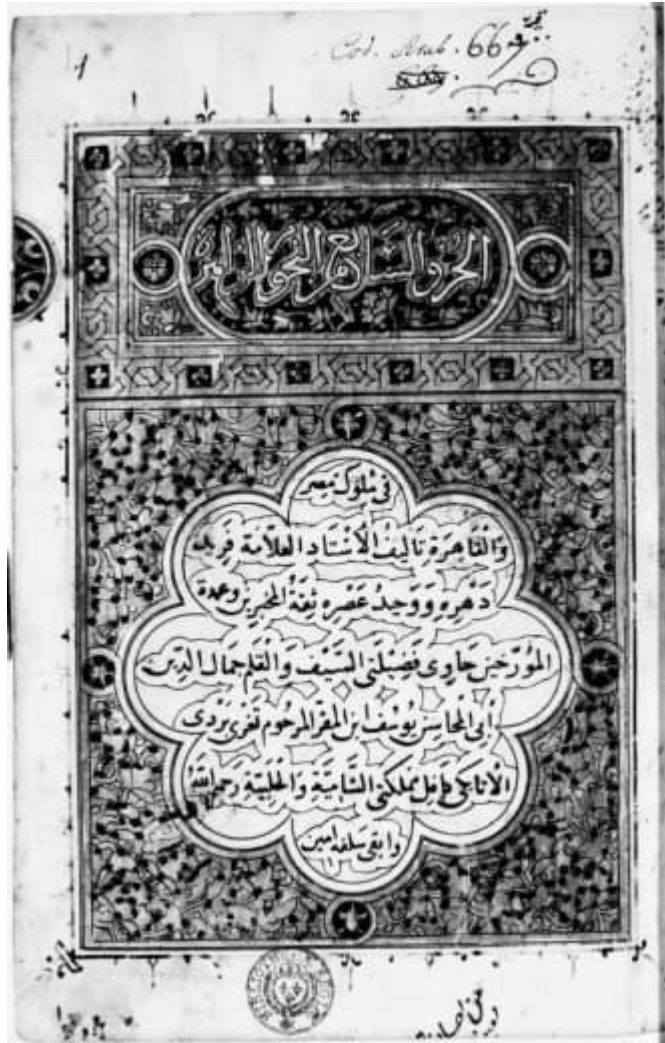 1
Cod. Arab. 663
الجزء السابع من النجوم الزاهرة
في ملوك مصر
وَالْقَاهِرَة تاليفُ الْأُسْتَاد العلّامَة فَرِيد
دَهْرِهِ وَوَحِيدُ عَصْرِه ثِقَةُ المخبرين وعمدة
المؤرّخين حَاوِى فَضِيْلَتَى السَّيْف وَالْقَلَم جمال الدّين
ابى المحاسن يُوسُف ابن المقرّ المرحُوم تغرى بَرْدى
الْاتابكى كافل مملكتى الشَّامِيَّةِ وَالْحَلَبِيَّة رحمه اللهُ
وابقى سلفه امين